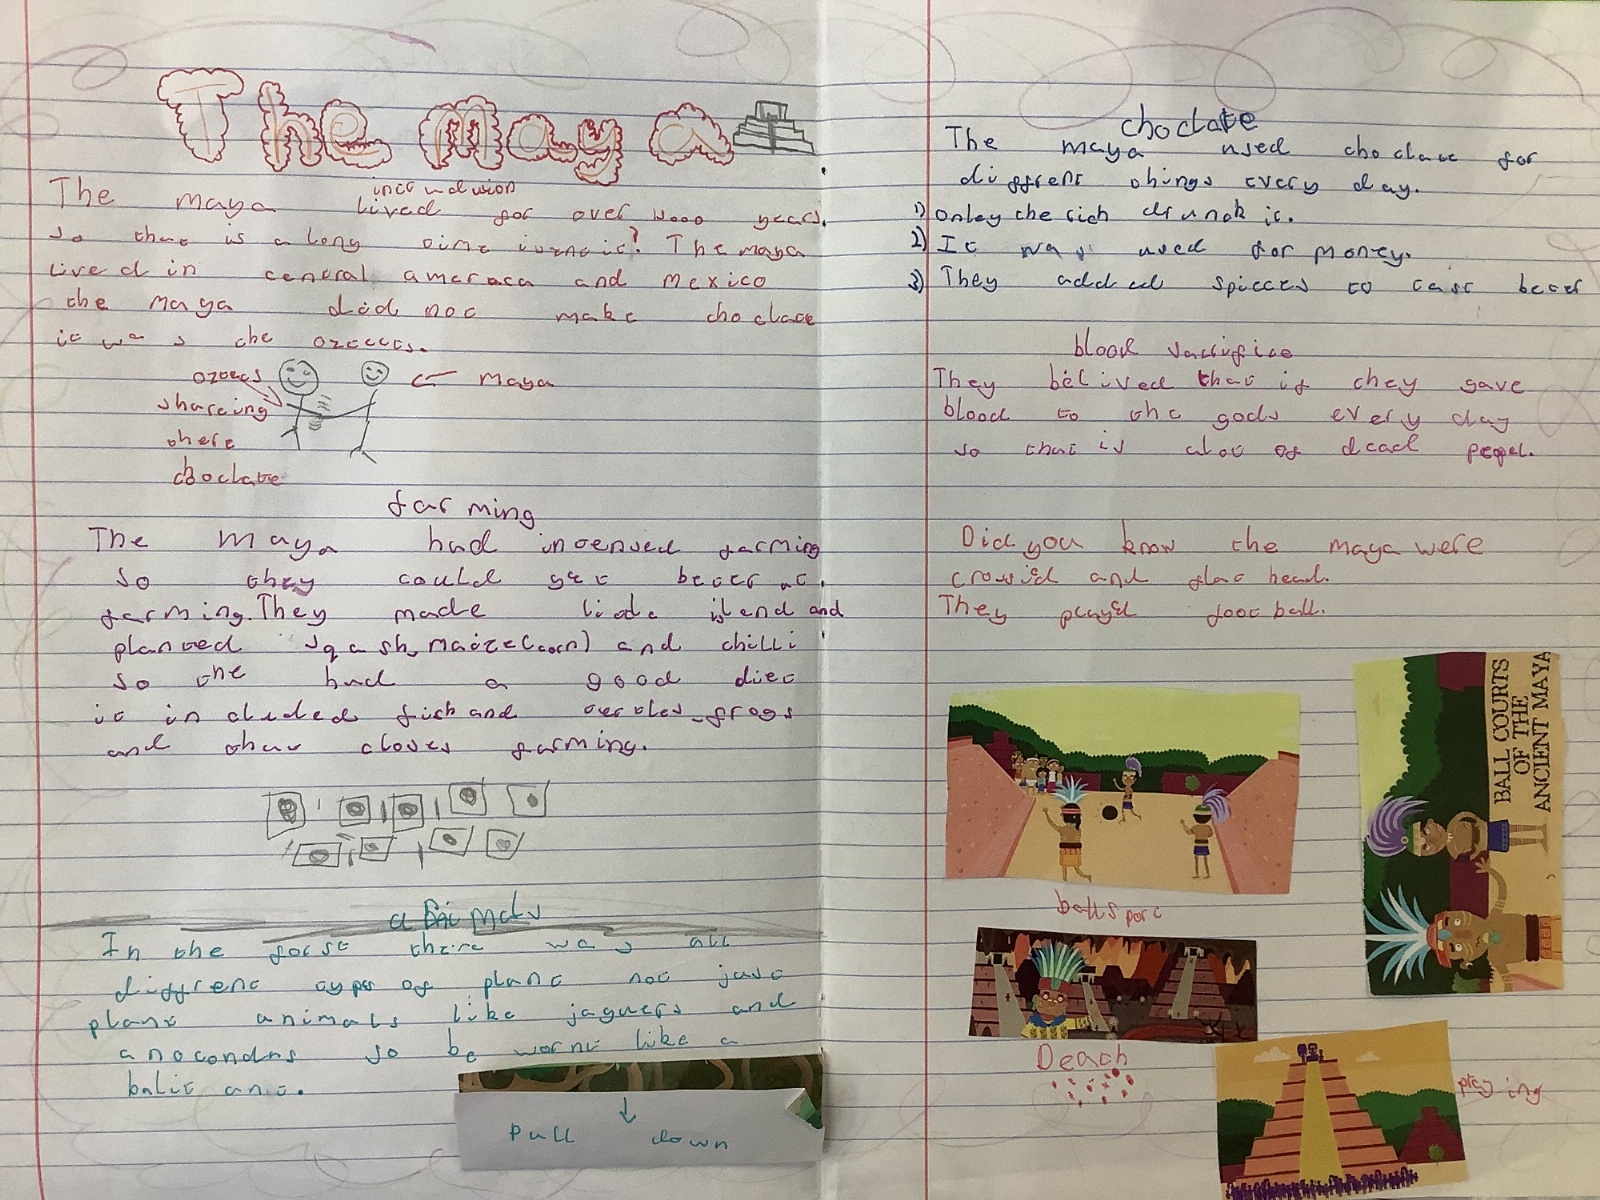 The Maya
The maya lived for over years.
so that is a long time isent it? The maya
lived in cenerol ameraca and mexico
the maya did not make choclate
it was the ozetecs.
ozetecs
Maya
shareing
there
choclate
farming
The Maya had intensed farming
so they could get beter at
farming. They made litde ilend and
planted sqash, maize (corn) and chilli
so the had a good diet
it in cluded fish and frogs
and farming.
animals
In the forst there was all
diffrent types of plant not just
plant animals like jaguers and
anocondas so be like a
pull down
choclate
The maya used choclate for
diffrent things every day.
1) onley the rich drunk it.
2) It was used for money.
3) They added spicces to tast beter
blood sacrifice
They belived that if they gave
blood to the gods every day
so that is alot of dead peopel.
Did you know the maya were
and flat head.
They playd football.
BALL COURTS
OF THE
ANCIENT MAYA
ball sport
Death
playing